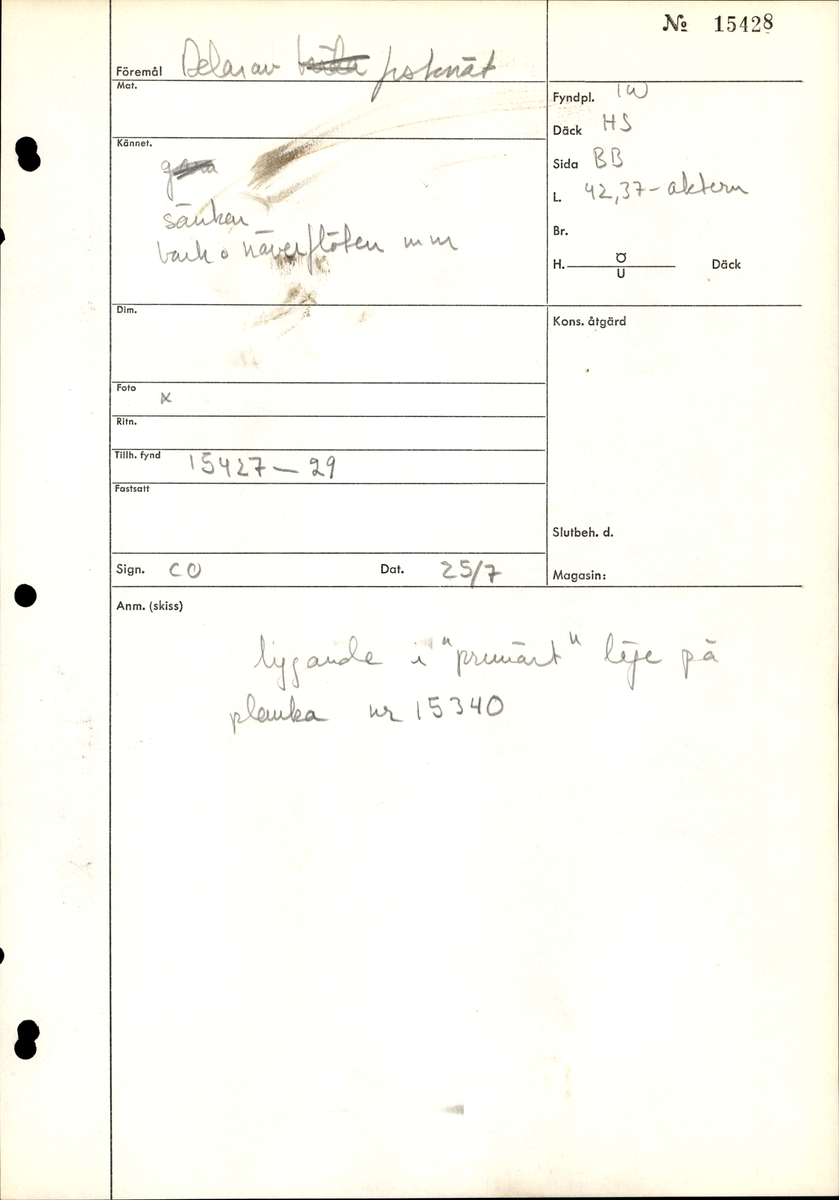 № 15428
Föremål Delar av fisknät
Mat.
Fyndpl. IW
Däck HS
Kännet.
Sida BB
L. 42,37 - aktern
sänken
bark o näverflöten mm
Br.
H. Ö U Däck
Dim.
Kons. åtgärd
Foto x
Ritn.
Tillh. fynd 15427 — 29
Fastsatt
Slutbeh. d.
Sign. CO Dat. 25/7
Magasin:
Anm. (skiss)
liggande i "primärt" läge på
planka nr 15340